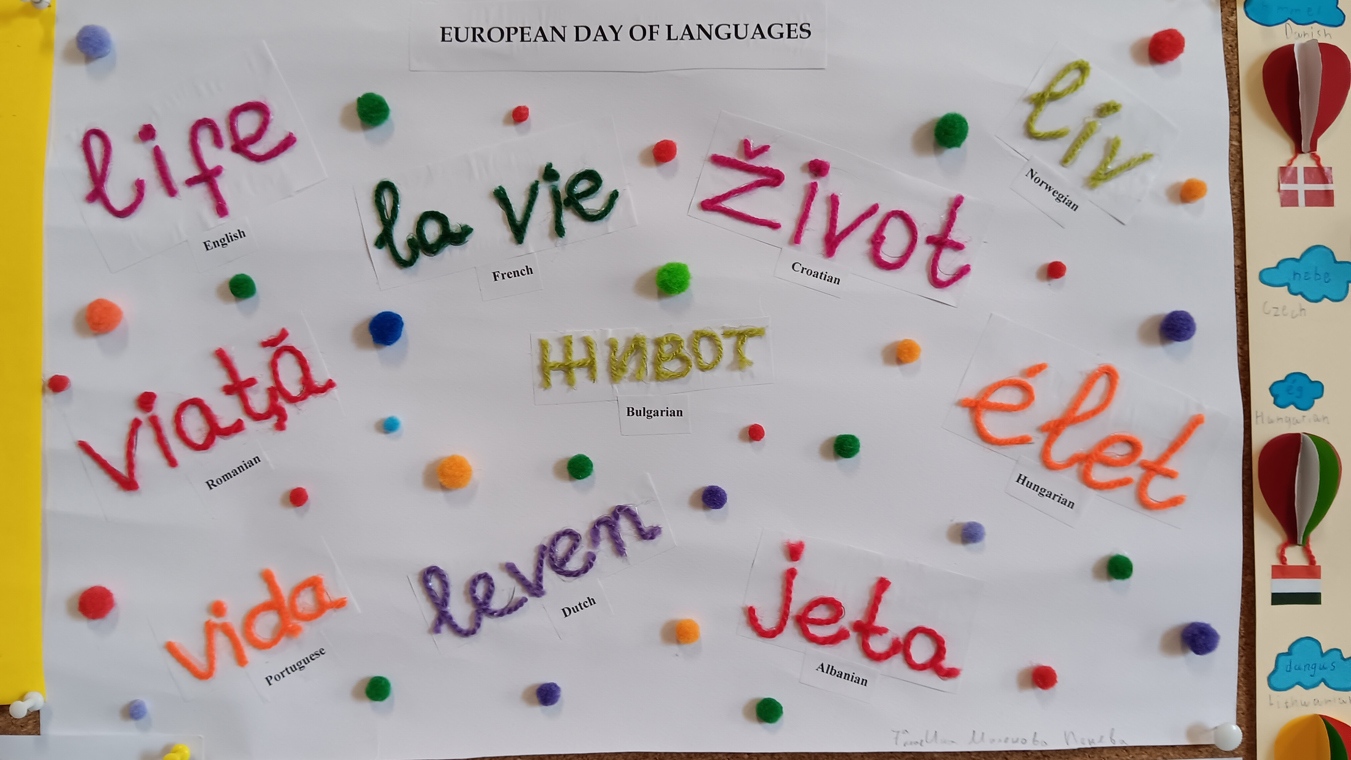 EUROPEAN DAY OF LANGUAGES
life
English
la vie
French
život
Croatian
liv
Norwegian
viață
Romanian
живот
Bulgarian
élet
Hungarian
vida
Portuguese
leven
Dutch
jeta
Albanian
Danish
nebe
Czech
ég
Hungarian
dangus